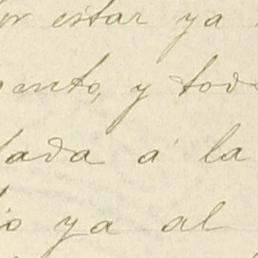 or estar ya
ento, y toda
lada á la
io ya al